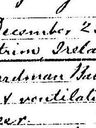 December 2
trim Irela
ardman Bu
& ventilati